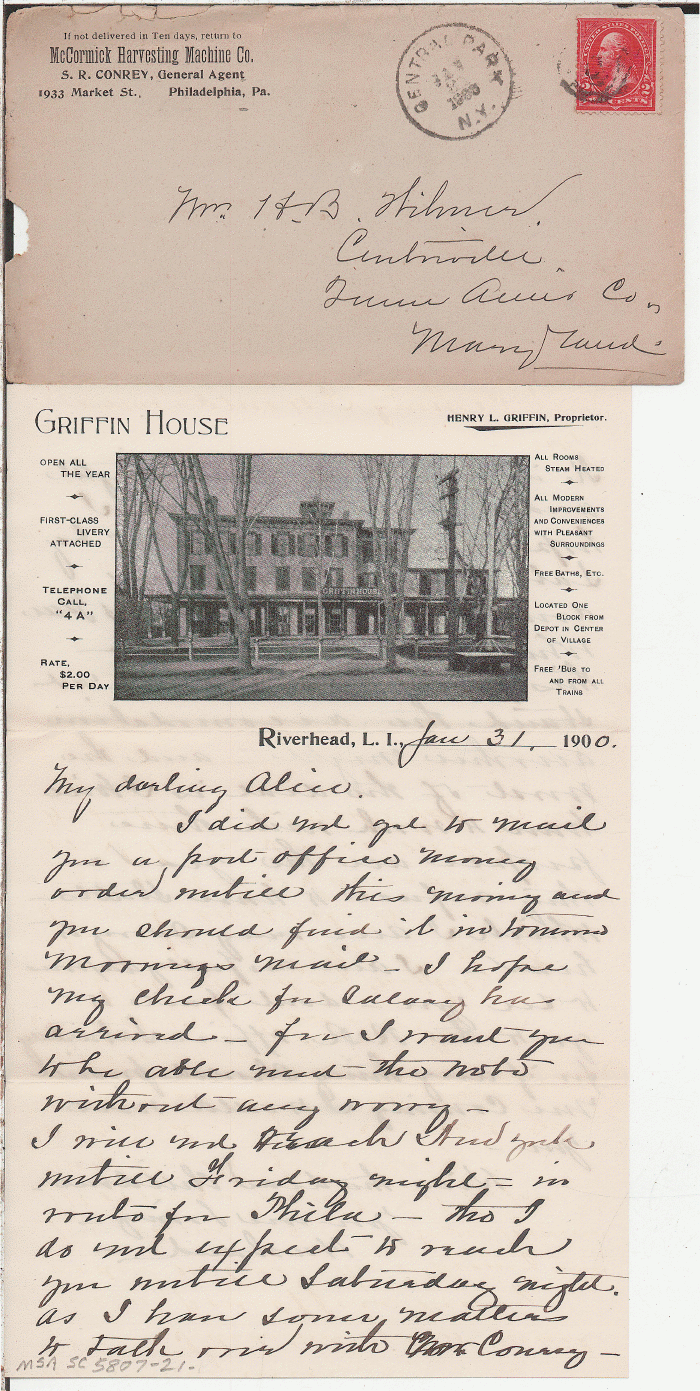 If not delivered in Ten days, return to
McCormick Harvesting Machine Co.
S. R. CONREY, General Agent
1933 Market St., Philadelphia, Pa.
CENTRAL PARK
N.Y.
2 CENTS 2
Mr. H. B. Wilmer.
Centreville
Queen Annes Co,
Maryland.
GRIFFIN HOUSE
HENRY L. GRIFFIN, Proprietor.
OPEN ALL
THE YEAR
FIRST-CLASS
LIVERY
ATTACHED
TELEPHONE
CALL,
"4 A"
RATE,
$2.00
PER DAY
GRIFFIN HOUSE
ALL ROOMS
STEAM HEATED
ALL MODERN
IMPROVEMENTS
AND CONVENIENCES
WITH PLEASANT
SURROUNDINGS
FREE BATHS, ETC.
LOCATED ONE
BLOCK FROM
DEPOT IN CENTER
OF VILLAGE
FREE 'BUS TO
AND FROM ALL
TRAINS
Riverhead, L. I., Jan 31. 1900.
My darling Alice.
I did not get to mail
you a post office money
order untill this morning and
you should find it in tomorrow
mornings mail - I hope
my check for salary has
arrived - for I want you
to be able meet the note
without any worry -
I will not reach New York
untill Friday night - in
route for Phila - tho I
do not expect to reach
you untill Saturday night.
as I have some matters
to talk over with Mr Conrey -
MSA SC 5807-21-